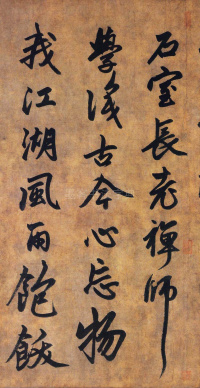 石室長老禪師
學古今心忘物
我江湖風雨飽